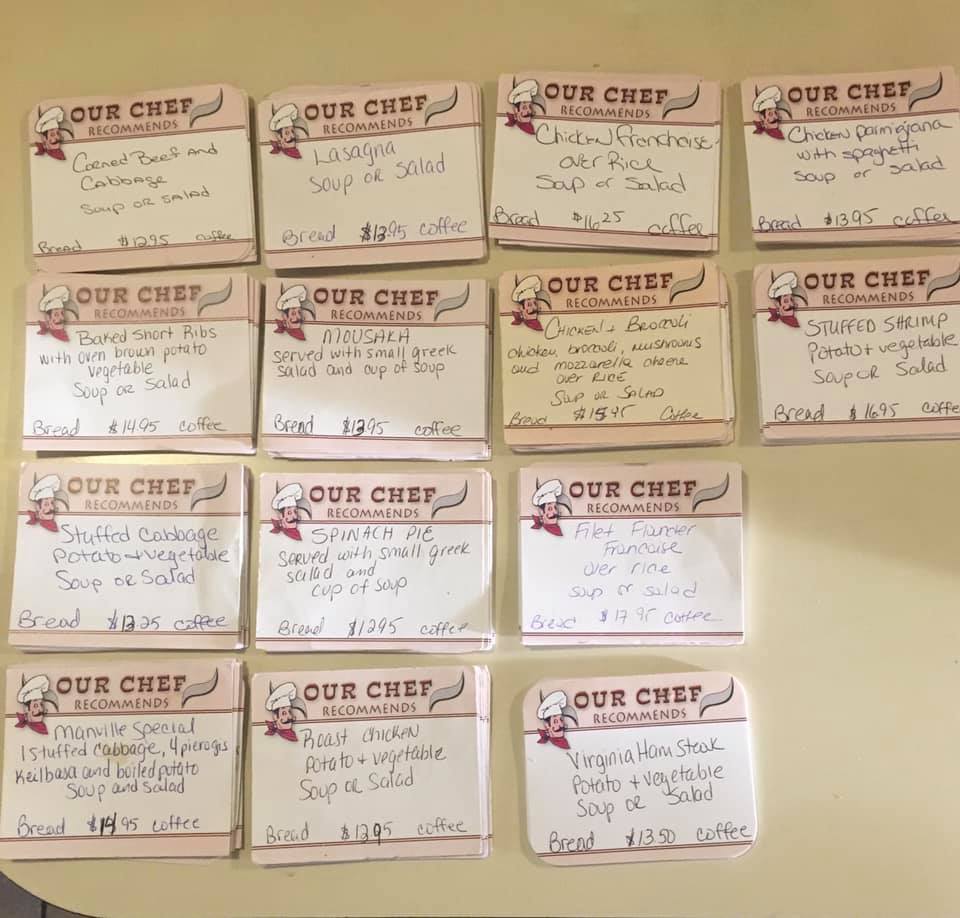 OUR CHEF
RECOMMENDS
Corned Beef And
Cabbage
Soup or Salad
Bread $12.95 coffee
OUR CHEF
RECOMMENDS
Lasagna
Soup or Salad
Bread $13.95 coffee
OUR CHEF
RECOMMENDS
Chicken franchaise
over Rice
Soup or Salad
Bread $16.25 coffee
OUR CHEF
RECOMMENDS
Chicken parmigiana
with spaghetti
Soup or Salad
Bread $13.95 coffee
OUR CHEF
RECOMMENDS
Baked Short Ribs
with oven brown potato
vegetable
Soup or Salad
Bread $14.95 coffee
OUR CHEF
RECOMMENDS
MOUSAKA
served with small greek
salad and cup of soup
Bread $13.95 coffee
OUR CHEF
RECOMMENDS
Chicken + Broccoli
chicken, broccoli, mushrooms
and mozzarella cheese
over Rice
Soup or Salad
Bread $15.45 Coffee
OUR CHEF
RECOMMENDS
STUFFED SHRIMP
Potato + vegetable
Soup or Salad
Bread $16.95 coffe
OUR CHEF
RECOMMENDS
Stuffed Cabbage
Potato + vegetable
Soup or Salad
Bread $13.25 coffee
OUR CHEF
RECOMMENDS
SPINACH PIE
Served with small greek
salad and
cup of soup
Bread $12.95 coffee
OUR CHEF
RECOMMENDS
Filet Flunder
Francaise
over rice
soup or salad
Bread $17.95 coffee
OUR CHEF
RECOMMENDS
Manville Special
1 stuffed cabbage, 4 pierogis
Keilbasa and boiled potato
Soup and salad
Bread $14.95 coffee
OUR CHEF
RECOMMENDS
Roast Chicken
Potato + vegetable
Soup or Salad
Bread $13.95 coffee
OUR CHEF
RECOMMENDS
Virginia Ham Steak
Potato + vegetable
Soup or Salad
Bread $13.50 coffee